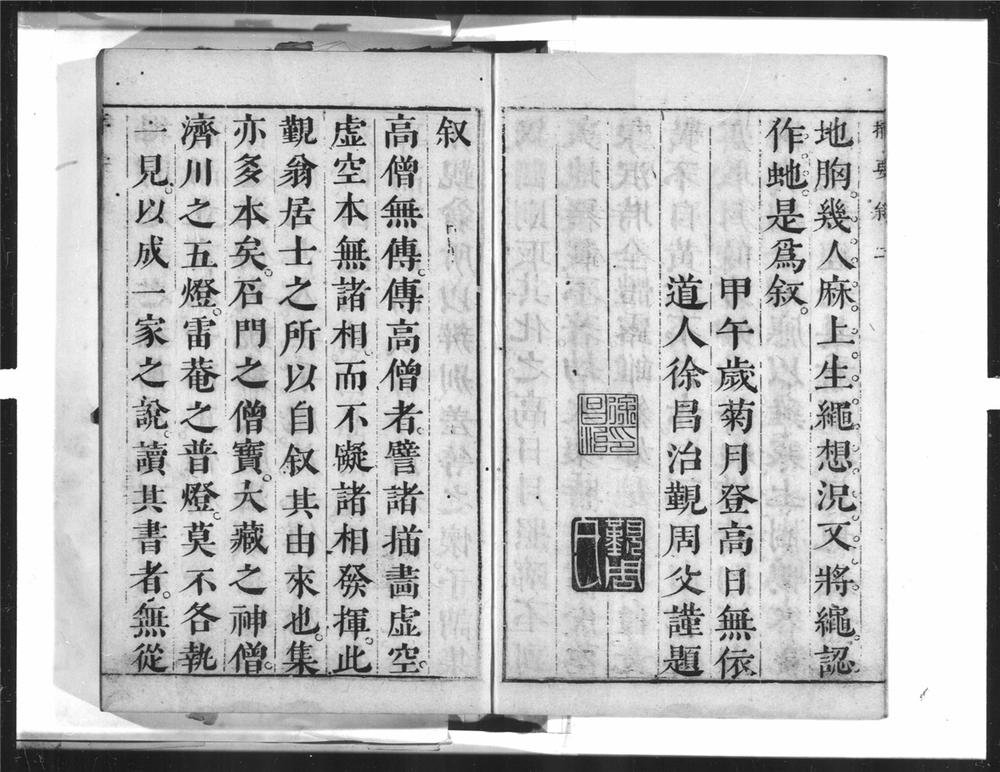 地胸。幾人麻上生繩想。況又將繩。認
作虵。是爲叙。
甲午歲菊月登高日無依
道人徐昌治覲周父謹題
徐印昌治
覲周
叙
高僧無傳。傳高僧者。譬諸描畵虛空。
虛空本無諸相。而不礙諸相發揮。此
覲翁居士之所以自叙其由來也。集
亦多本矣。石門之僧寶。大藏之神僧。
濟川之五燈。雷菴之普燈。莫不各執
一見。以成一家之說。讀其書者。無從